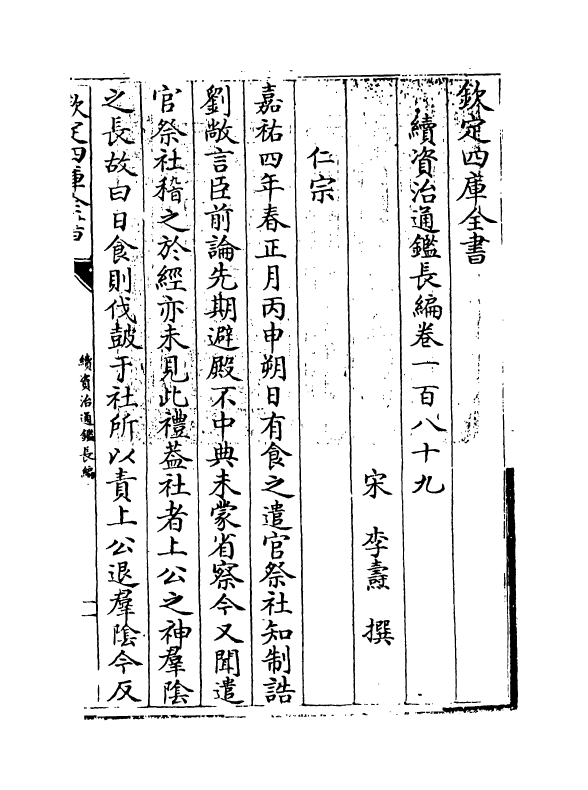 欽定四庫全書
續資治通鑑長編卷一百八十九
宋 李燾 撰
仁宗
嘉祐四年春正月丙申朔日有食之遣官祭社知制誥
劉敞言臣前論先期避殿不中典未蒙省察今又聞遣
官祭社稽之於經亦未見此禮葢社者上公之神羣陰
之長故曰日食則伐鼓于社所以責上公退羣陰今反
欽定四庫全書
續資治通鑑長編